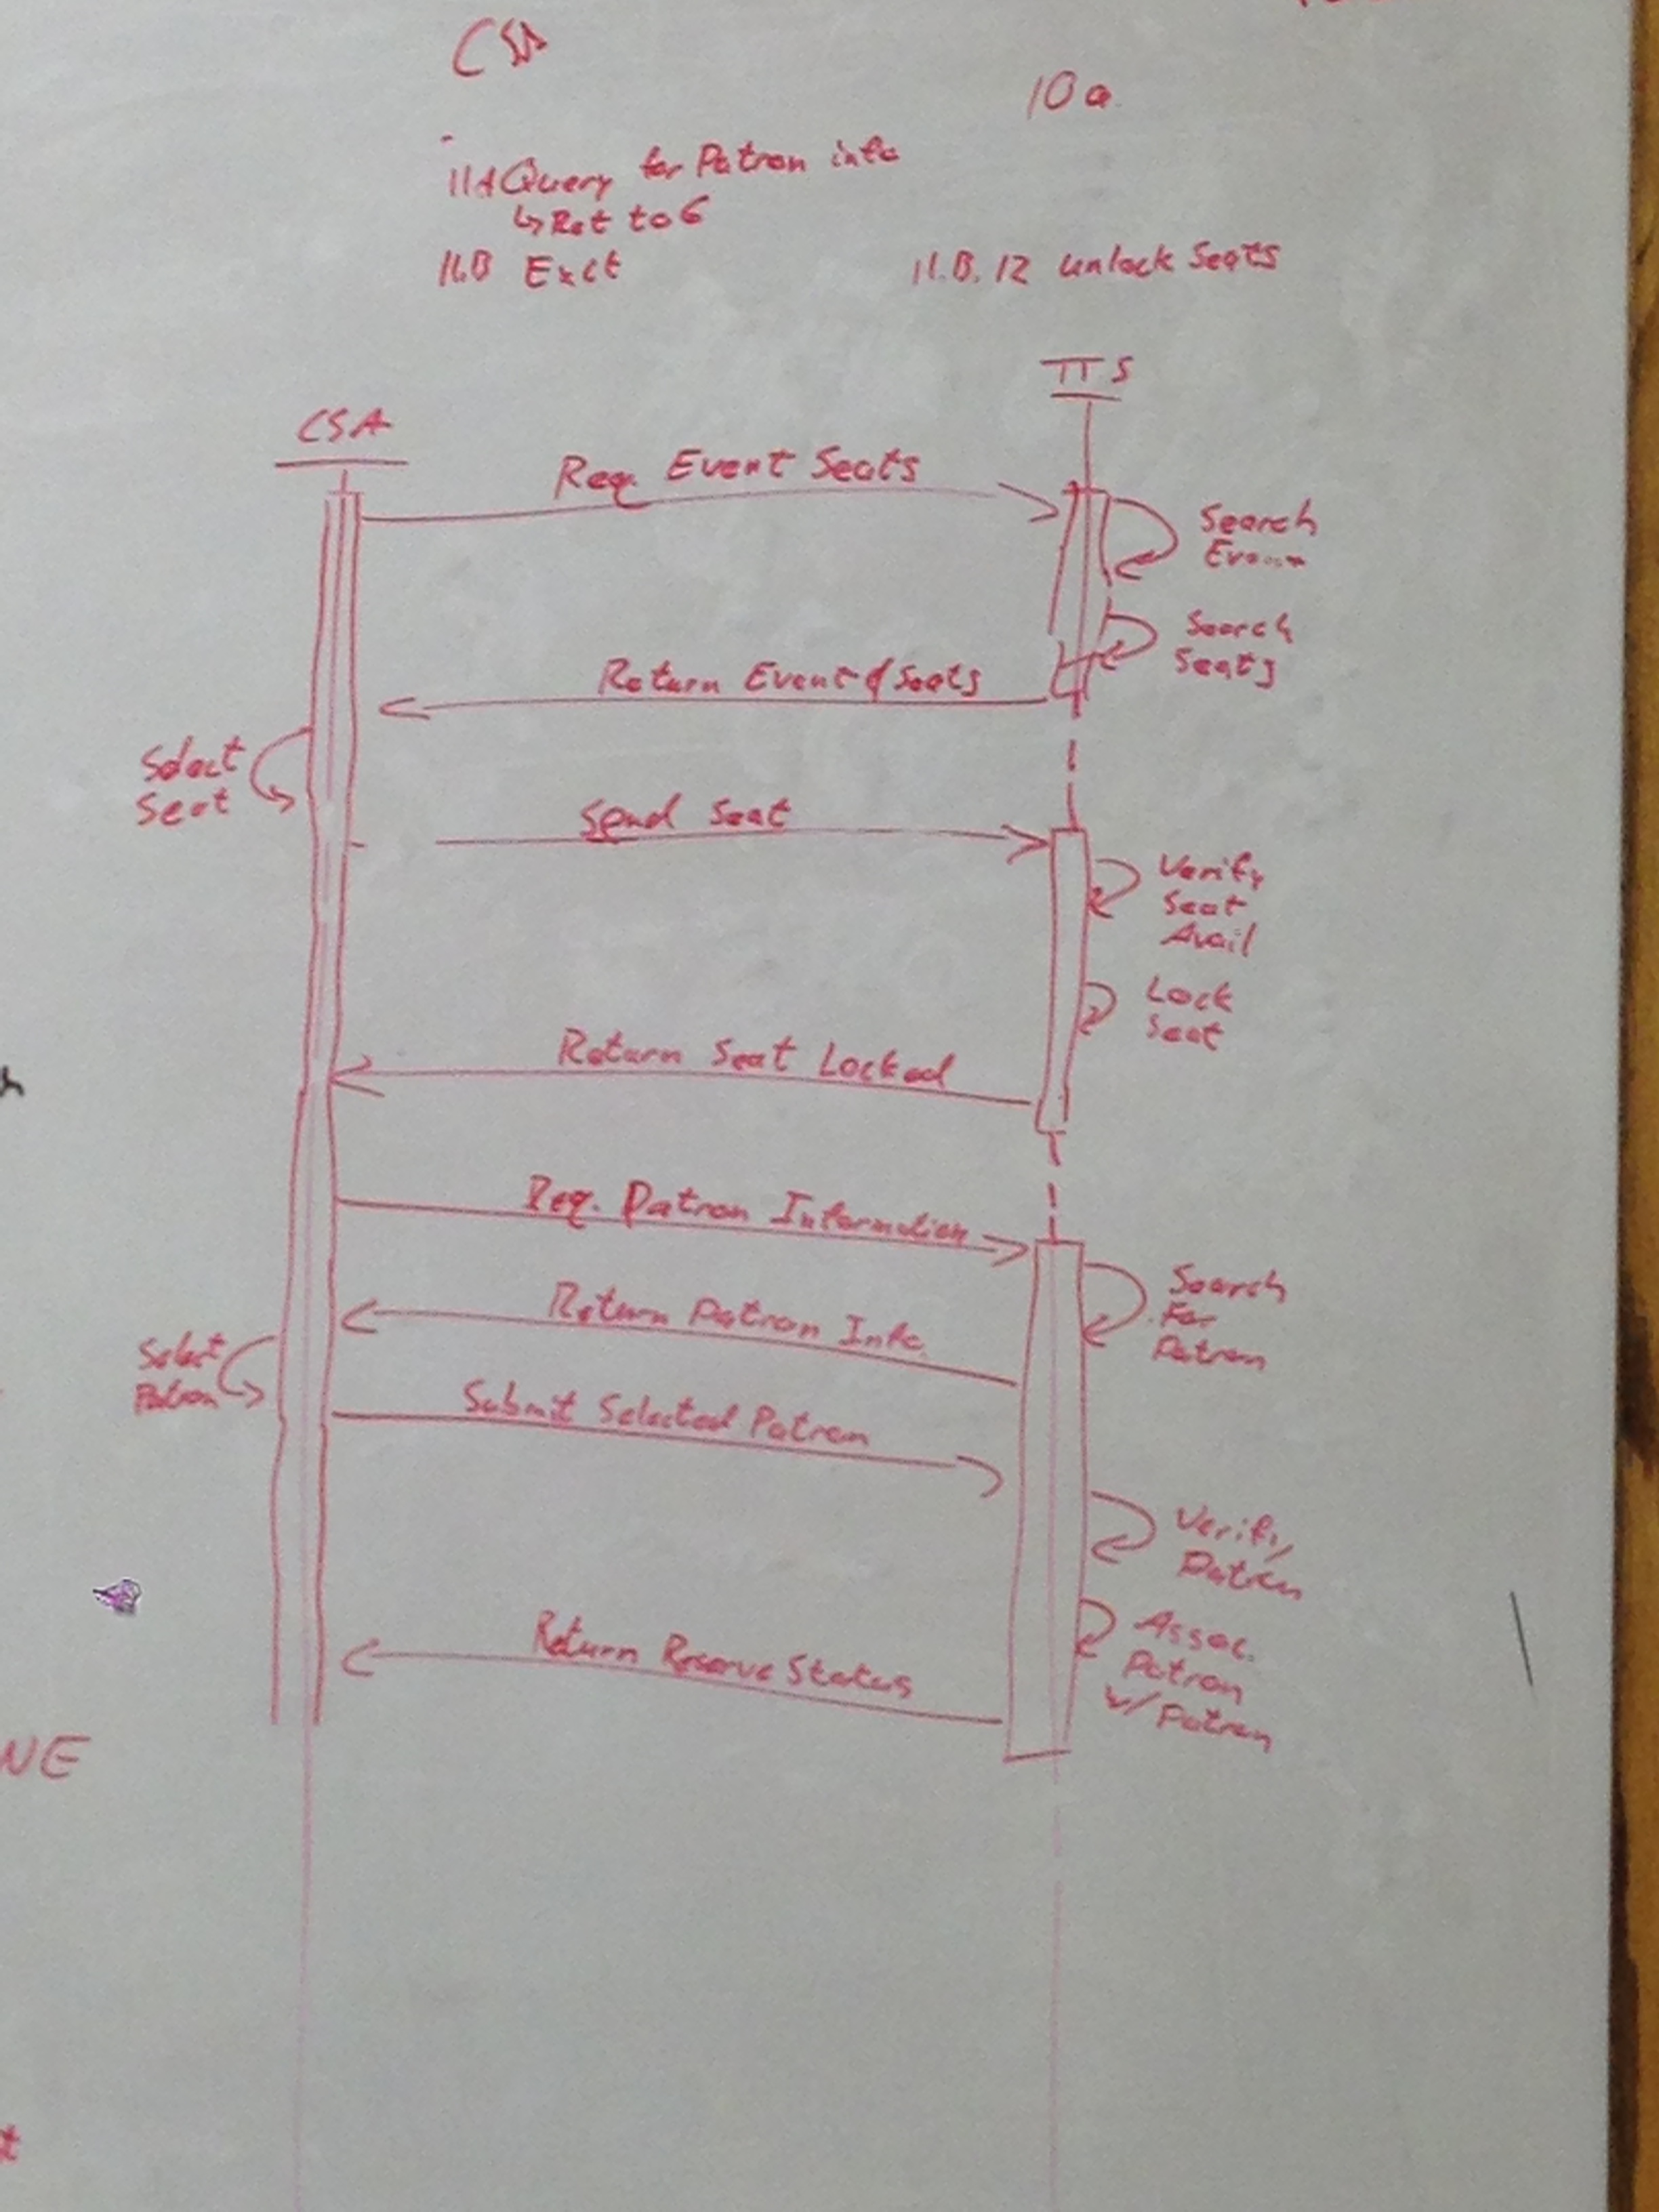 CSA
10a
11A Query for Patron info
↳ Ret to 6
11.B Exit
11.B.12 unlock Seats
TTS
CSA
Req. Event Seats
Search
Return Event & Seats
Search
Seats
Select
Seat
Send Seat
Verify
Seat
Avail
Lock
Seat
Return Seat Locked
Req. Patron Information
Search
For
Patron
Return Patron Info.
Select
Patron
Submit Selected Patron
Verify
Patron
Return Reserve Status
Assoc.
Patron
w/ Patron
NE